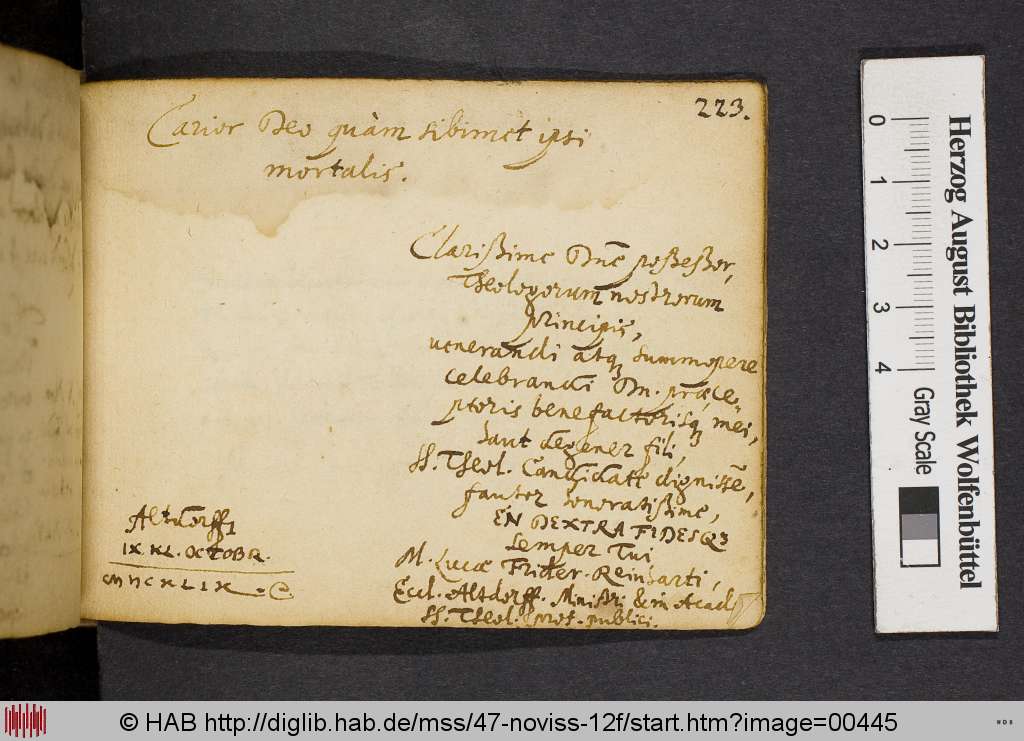 223.
Carior Deo quàm sibimet ipsi
mortalis.
Clarißime Dñe poßeßor,
Theologorum nostrorum
Principis,
venerandi atq summopere
celebrandi Dn. præce-
ptoris benefactorisq mei,
haut degener fili,
SS. Theol. Candidate dignissē,
fautor honoratißime,
EN DEXTRA FIDESQ3
semper Tui
M. Lucæ Frider. Reinharti,
Eccl. Altdorff. Ministri & in Acad.
SS. Theol. prof. publici.
AltdorffI
IX. KL. OCTOBR.
Herzog August Bibliothek Wolfenbüttel
0 1 2 3 4
Gray Scale
© HAB http://diglib.hab.de/mss/47-noviss-12f/start.htm?image=00445
WDB